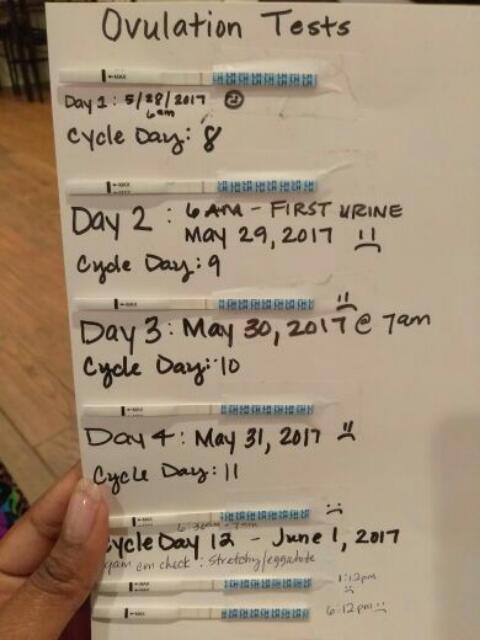 Ovulation Tests
Day 1: 5/28/2017
6am
Cycle Day: 8
Day 2: 6 AM - FIRST URINE
May 29, 2017
Cycle Day: 9
Day 3: May 30, 2017 @ 7am
Cycle Day: 10
Day 4: May 31, 2017
Cycle Day: 11
6:30am - 7am
Cycle Day 12 - June 1, 2017
check: stretchy/eggwhite
1:12pm
6:12pm